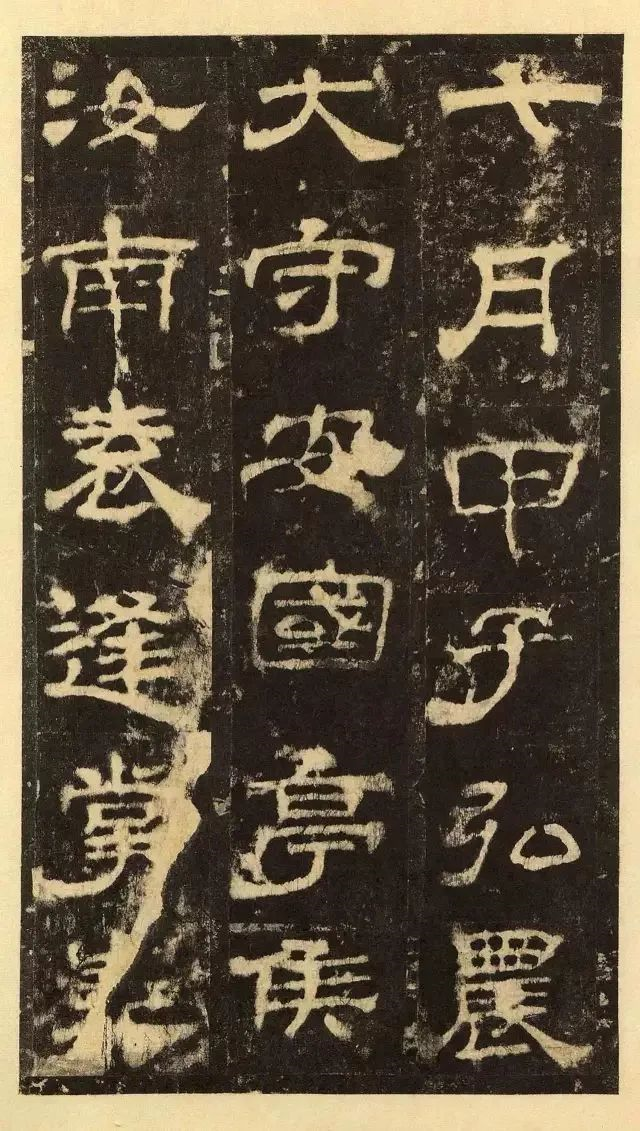 七月甲子弘農
大守安國亭侯
汝南袁逢掌